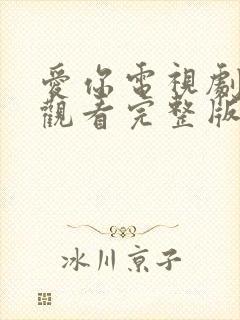 愛你電視劇
觀看完整版
冰川京子